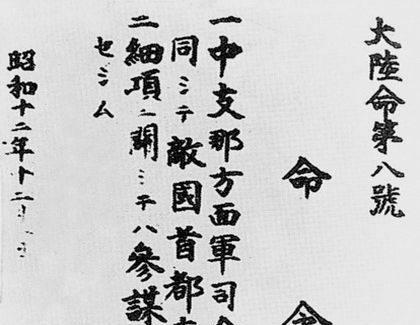 大陸命第八號
命
一中支那方面軍司
同シテ敵國首都
二細項ニ關シテハ參謀
セシム
昭和十二年十二